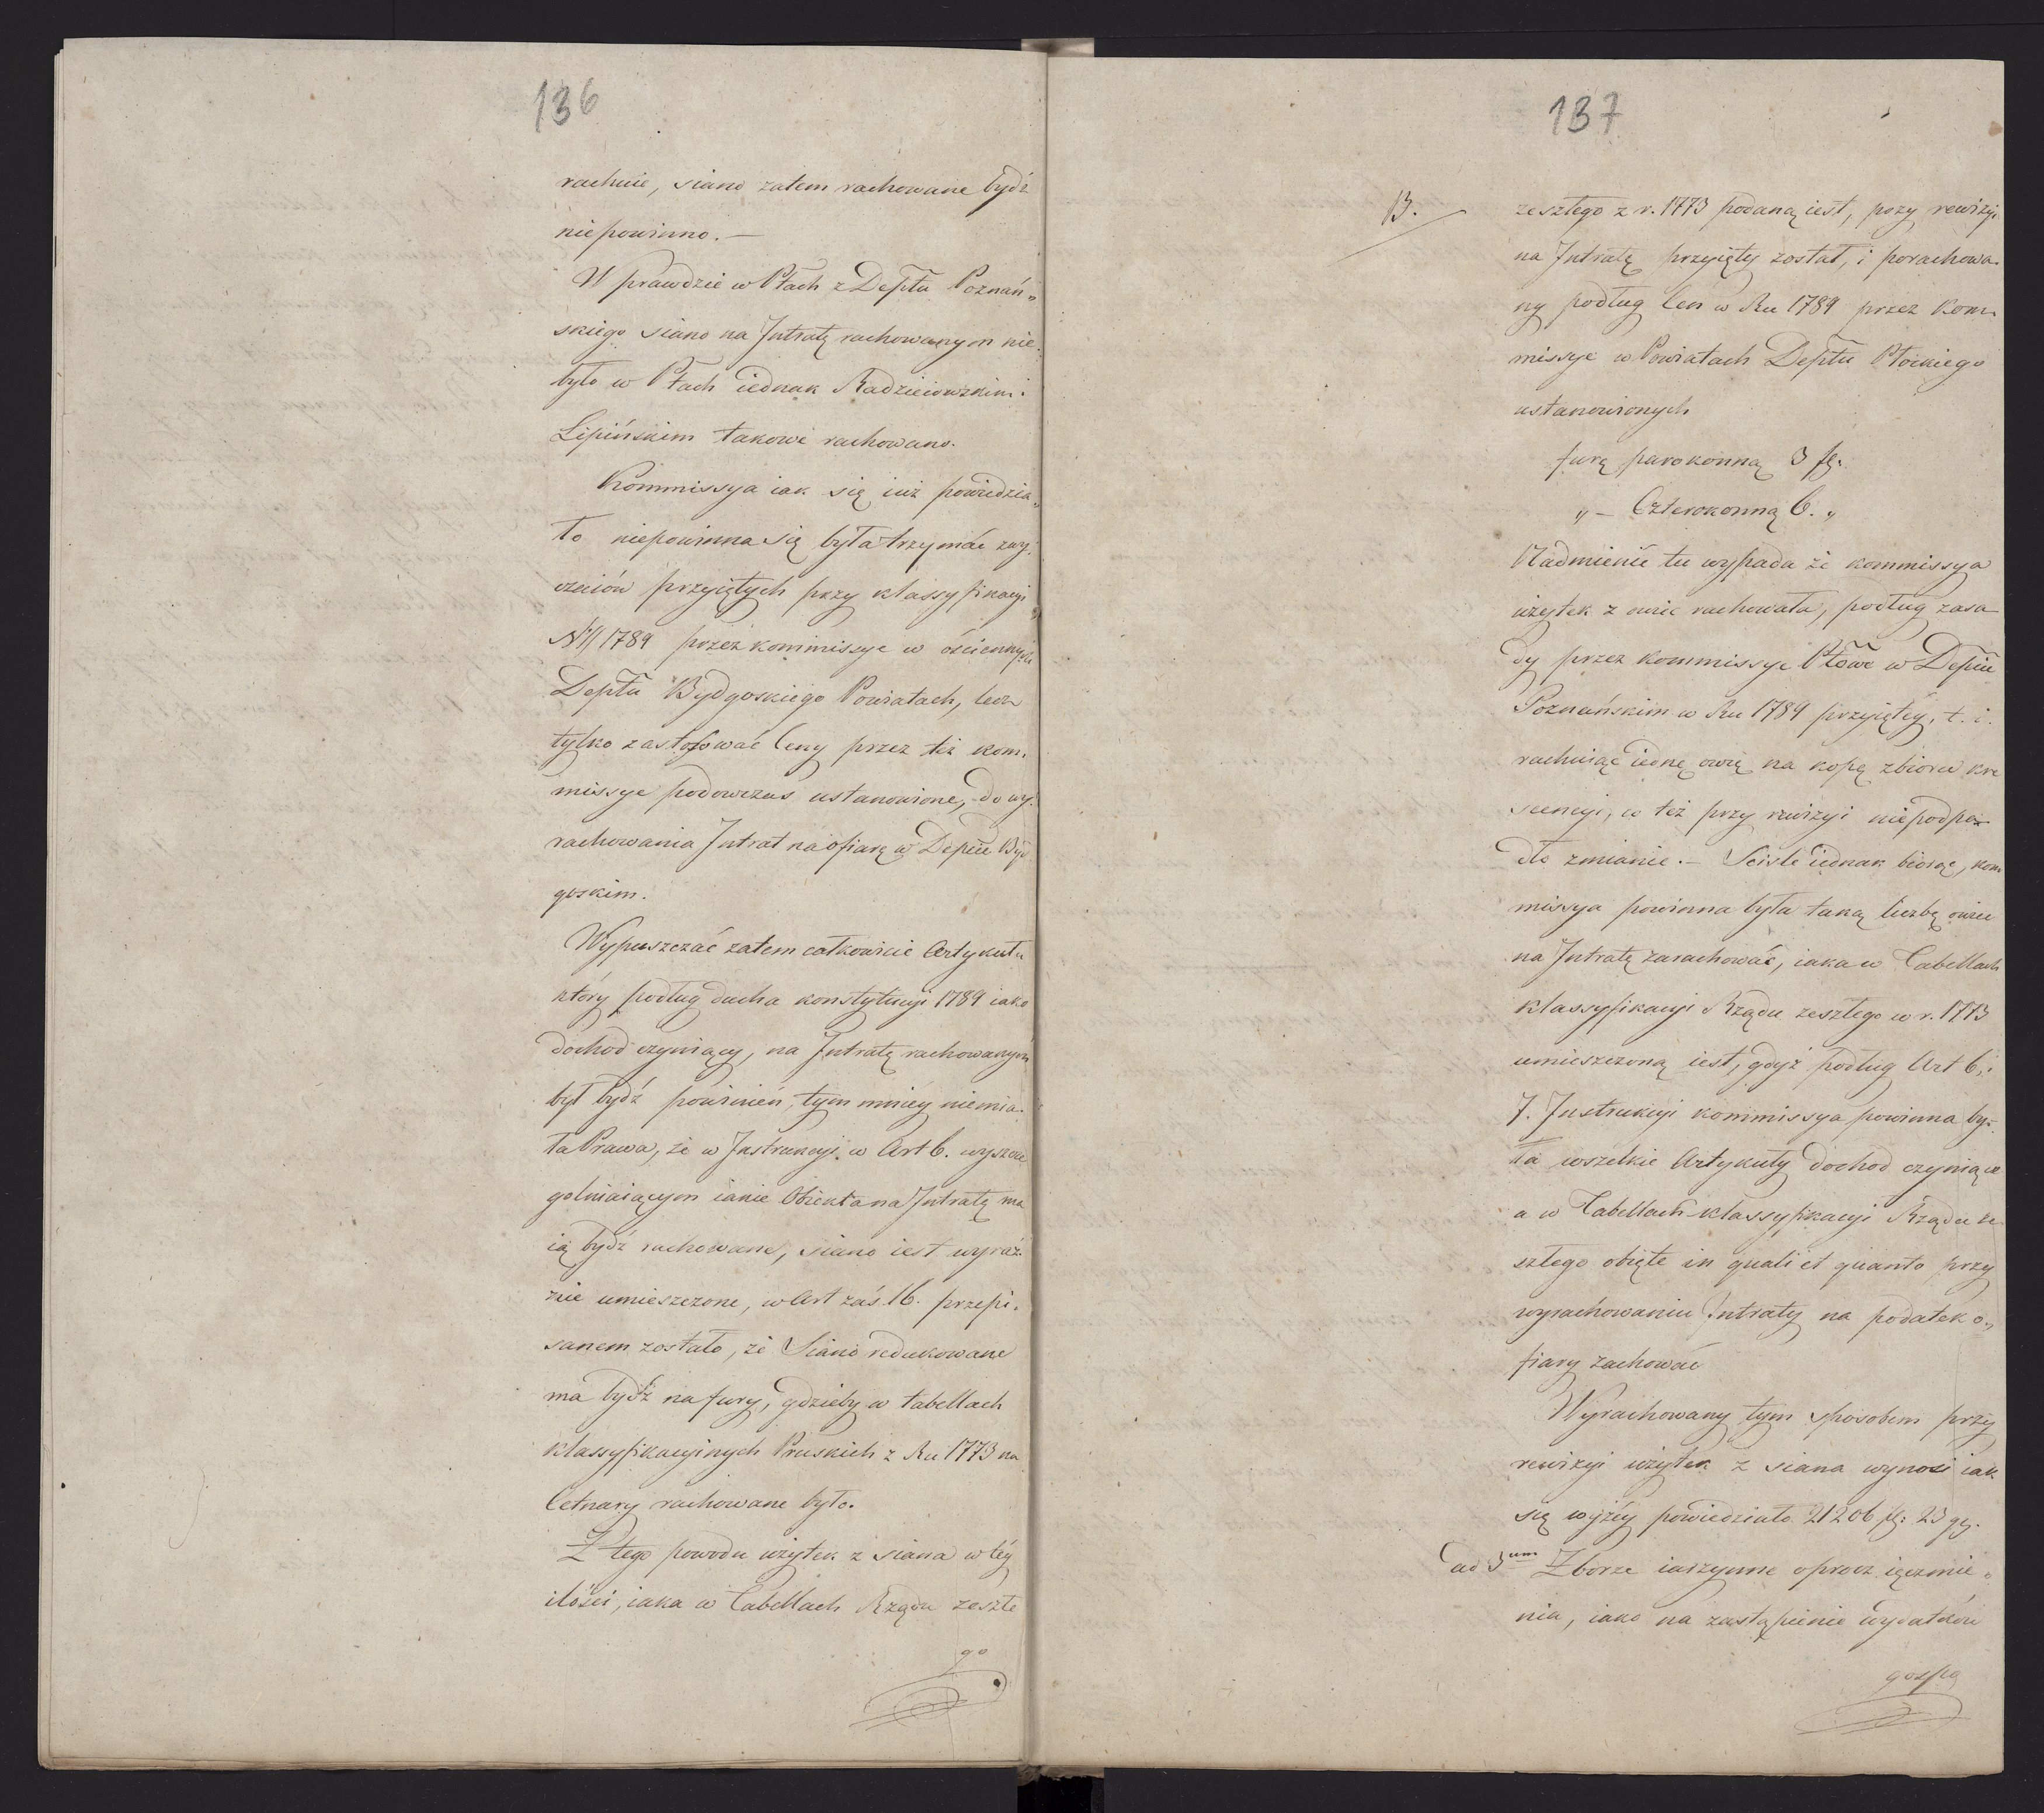 136
rachuie, siano zatem rachowane bydź
niepowinno. —
W prawdzie w Ptach z Deptu Poznań„
skiego siano na Intratę rachowanym nie„
było w Ptach iednak Radzieiowskim i
Lipińskim takowe rachowano.
Kommissya iak się iuż powiedzia„
ło niepowinna się była trzymać zwy„
czaiów przyiętych przy klassyfikacyi
1789 przez kommissye w ościennych
Deptu Bydgoskiego Powiatach, lecz
tylko zastosować Ceny przez też kom„
missye podowczas ustanowione, do wy„
rachowania Intrat na ofiarę w Depcie Byd
goskim.
Wypuszczać zatem całkowicie Artykułu
który podług ducha konstytucyi 1789 iako
dochod czyniący, na Intratę rachowanym
był bydź powinien, tym mniey niemia„
ła Prawa, że w Instrukcyi w Art 6. wyszcze
gólniaiącym iakie Obiekta na Intratę ma
ią bydź rachowane, siano iest wyraź„
nie umieszczone, w Art zaś 16. przepi„
sanem zostało, że Siano redukowane
ma bydź na fury, gdzieby w tabellach
klassyfikacyinych Pruskich z Ru 1773 na
Cetnary rachowane było.
Z tego powodu użytek z siana w téy
ilości, iaka w Tabellach Rządu zeszłe
go
137
13.
zeszłego z r. 1773 podaną iest, przy rewizyi
na Intratę przyięty został, i porachowa„
ny podług Cen w Ru 1789 przez Kom„
missye w Powiatach Deptu Płockiego
ustanowionych
furę parokonną 3 fl:
„ — Czterokonną 6. „
Nadmienić tu wypada że kommissya
użytek z owiec rachowała, podług zasa
dy przez kommissye Ptowe w Depcie
Poznańskim w Ru 1789 przyiętéy, t. i.
rachuiąc iednę owcę na kopę zbioru kre
scencyi, co też przy rewizyi niepodpa„
dło zmianie. — Sciśle iednak biorąc, kom
missya powinna była taką liczbę owiec
na Intratę zarachować, iaka w Tabellach
klassyfikacyi Rządu zeszłego w r. 1773
umieszczoną iest, gdyż podług Art 6, i
7. Instrukcyi kommissya powinna by„
ła wszelkie Artykuły dochod czyniące
a w Tabellach klassyfikacyi Rządu ze
szłego obięte in quali et quanto przy
wyrachowaniu Intraty na podatek o„
fiary zachować
Wyrachowany tym sposobem przy
rewizyi użytek z siana wynosi iak
się wyżéy powiedziało 21206 fl: 23 gr.
ad 3um Zboże iarzynne oprocz ięczmie„
nia, iako na zastąpienie wydatków
gospo